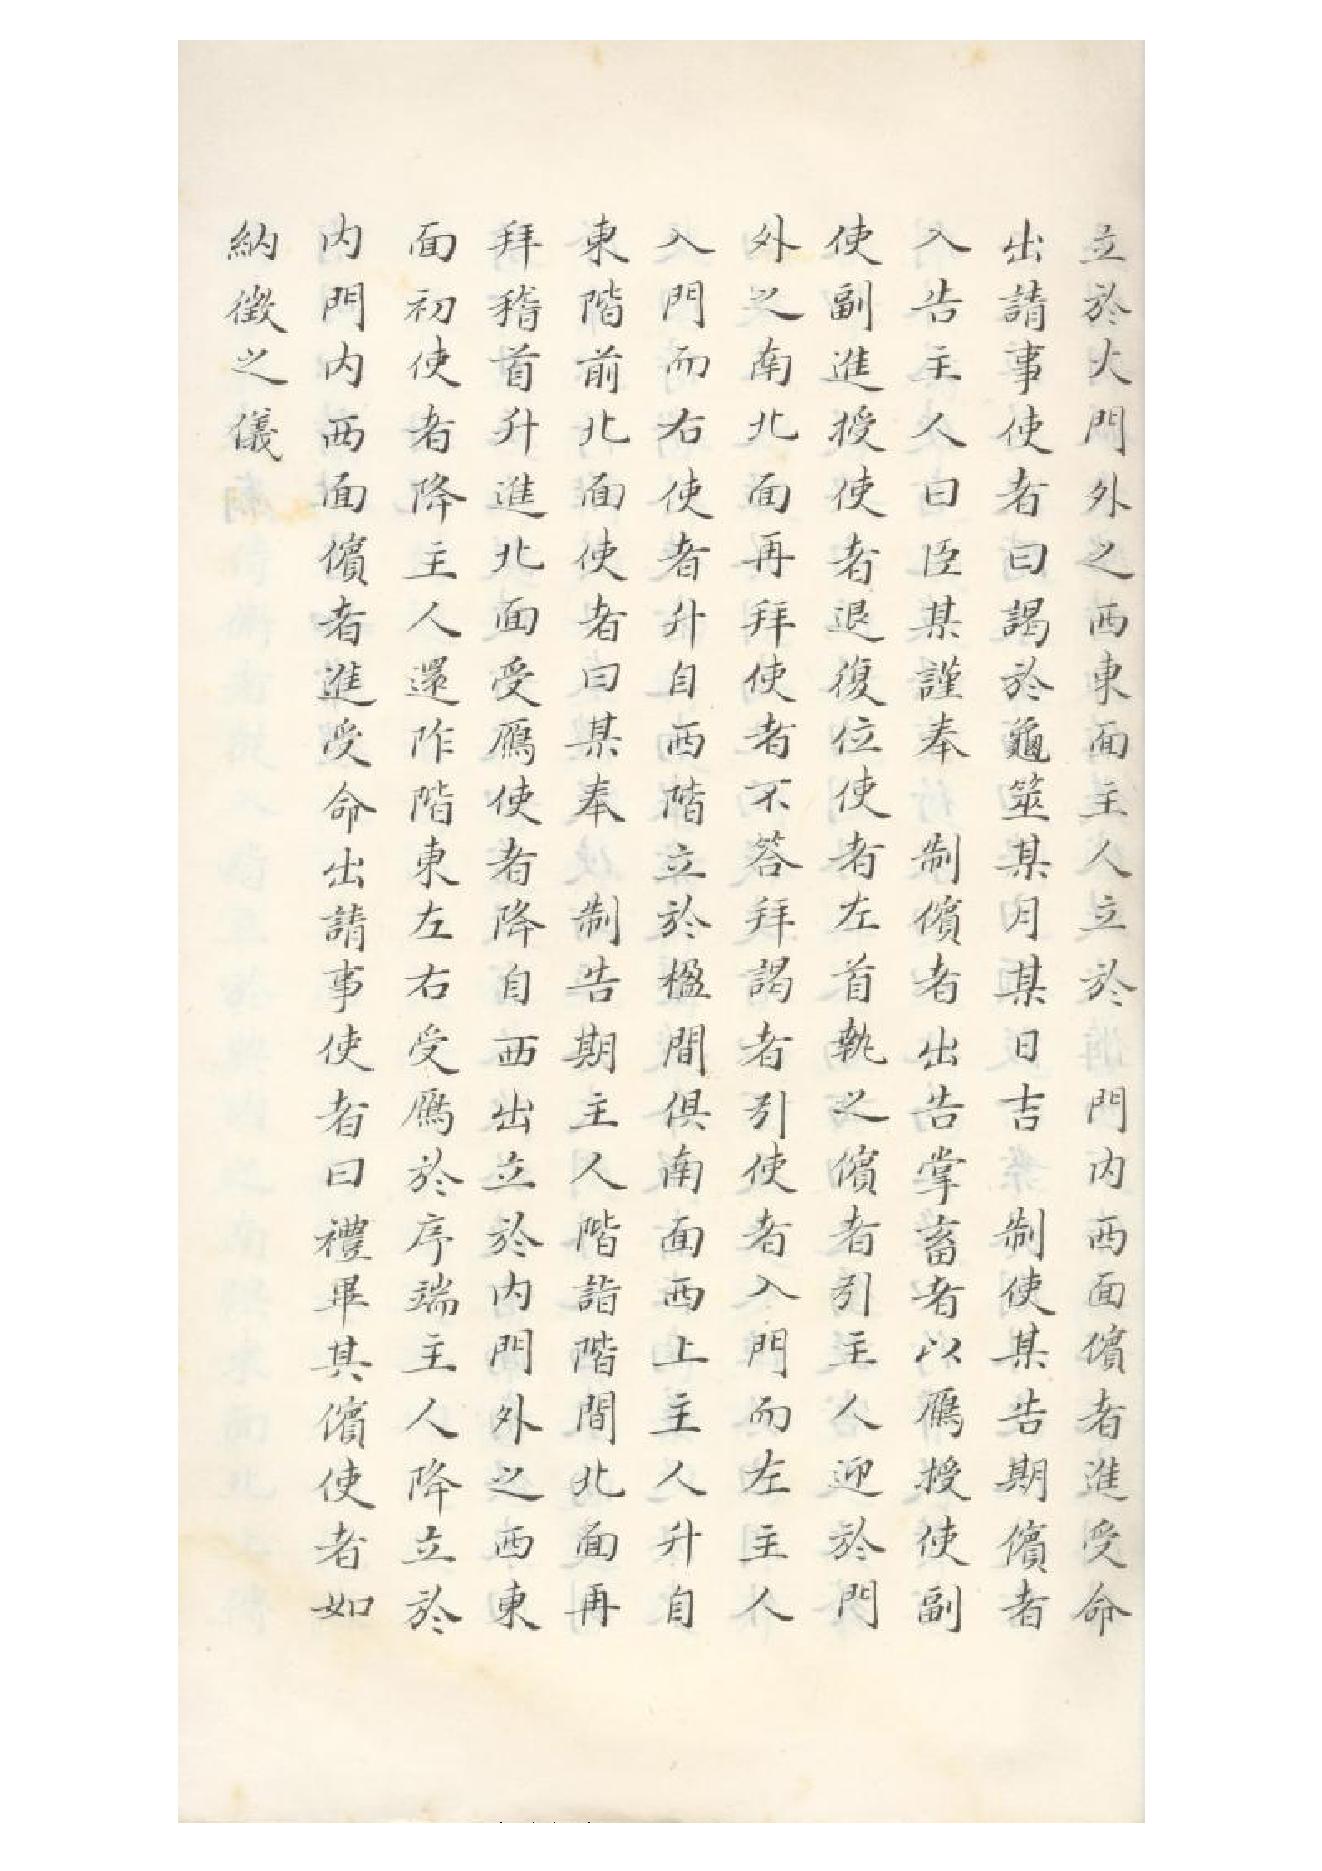 立於大門外之西東面主人立於門內西面儐者進受命
出請事使者曰謁於龜筮某月某日吉制使某告期儐者
入告主人曰臣某謹奉制儐者出告掌畜者以鴈授使副
使副進授使者退復位使者左首執之儐者引主人迎於門
外之南北面再拜使者不答拜謁者引使者入門而左主人
入門而右使者升自西階立於楹間俱南面西上主人升自
東階前北面使者曰某奉制告期主人階詣階間北面再
拜稽首升進北面受鴈使者降自西出立於內門外之西東
面初使者降主人還阼階東左右受鴈於序端主人降立於
內門內西面儐者進受命出請事使者曰禮畢其儐使者如
納徵之儀